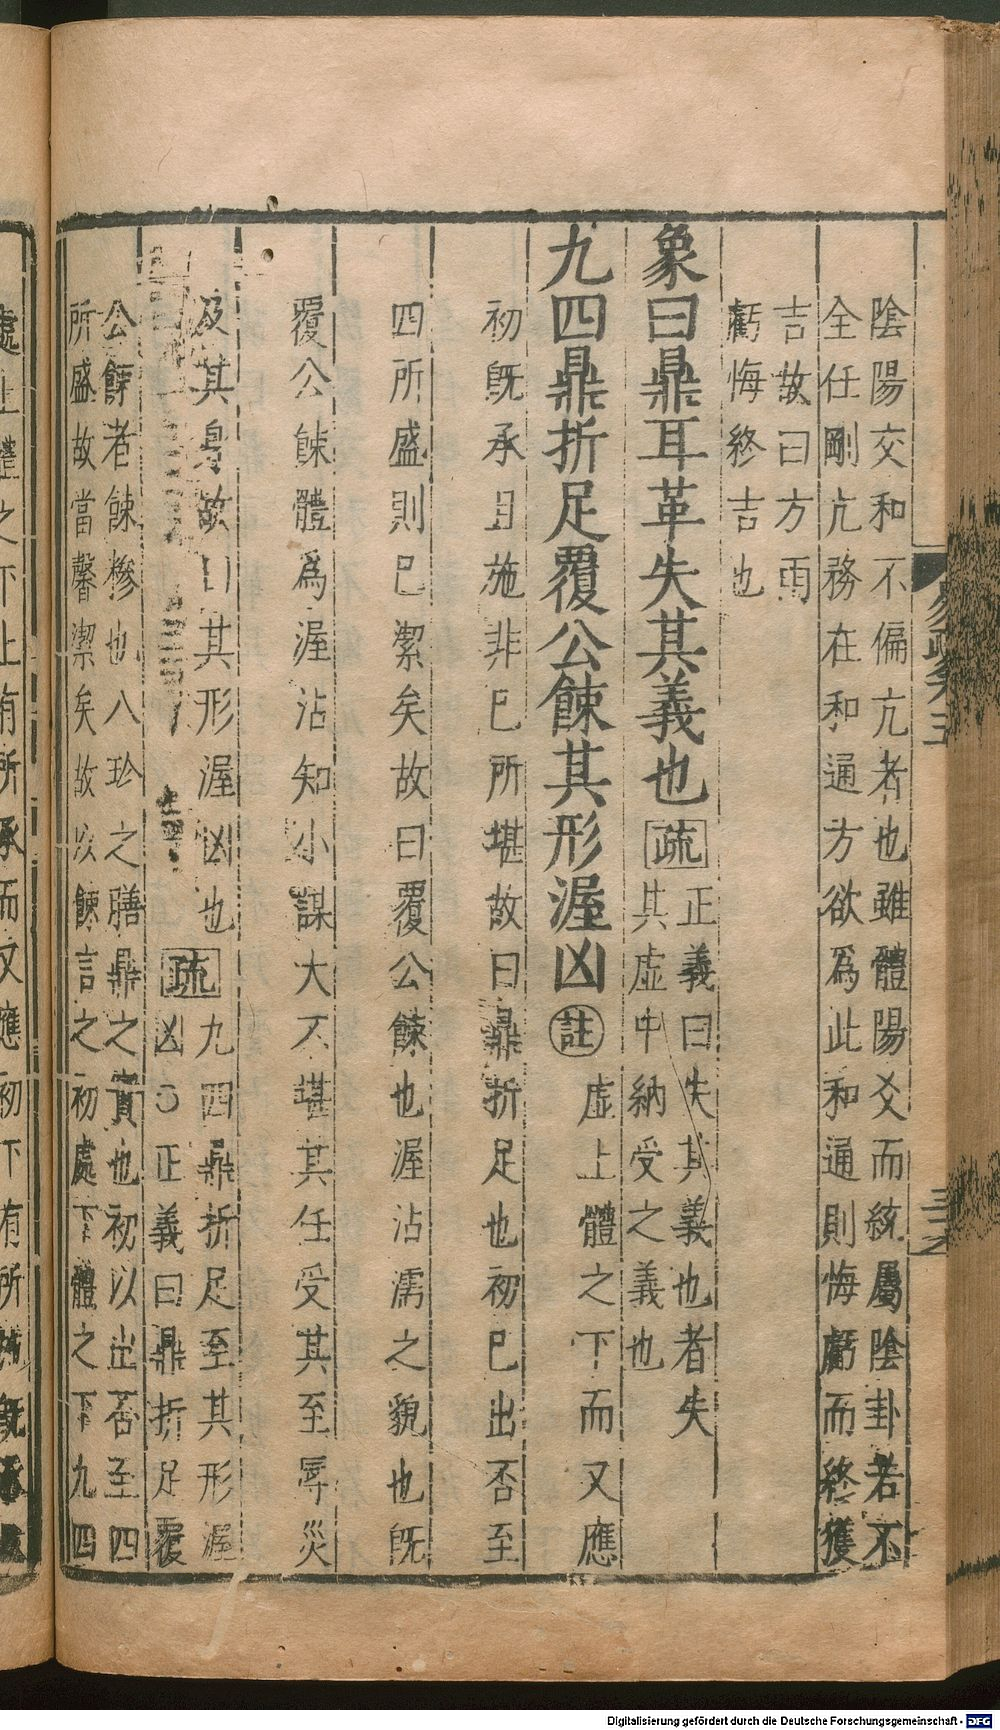 陰陽交和不偏亢者也雖體陽爻而統屬陰卦若不
全任剛亢務在和通方欲爲此和通則悔虧而終獲
吉故曰方雨
虧悔終吉也
象曰鼎耳革失其義也疏正義曰失其義也者失
其虛中納受之義也
九四鼎折足覆公餗其形渥凶註虛上體之下而又應
初旣承且施非已所堪故曰鼎折足也初已出否至
四所盛則已潔矣故曰覆公餗也渥沾濡之貌也旣
覆公餗體爲渥沾知小謀大不堪其任受其至辱災
及其身故曰其形渥凶也疏九四鼎折足至其形渥
凶○正義曰鼎折足覆
公餗者餗糝也八珍之膳鼎之實也初以出否至四
所盛故當馨潔矣故以餗言之初處下體之下九四
處上體之下上有所承而又應初下有所
旣承
易疏卷五
Digitalisierung gefördert durch die Deutsche Forschungsgemeinschaft - DFG